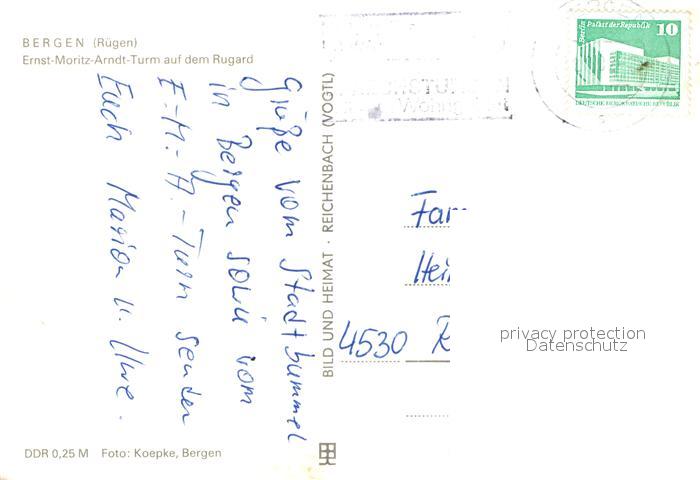 BERGEN (Rügen)
Ernst-Moritz-Arndt-Turm auf dem Rugard
Grüße vom Stadtbummel
in Bergen sowie vom
E.-M.-A.-Turm senden
Euch Marion u. Uwe.
BILD UND HEIMAT · REICHENBACH (VOGTL)
Berlin Palast der Republik 10
DEUTSCHE DEMOKRATISCHE REPUBLIK
Fam
Hei
4530 R
privacy protection
Datenschutz
DDR 0,25 M Foto: Koepke, Bergen